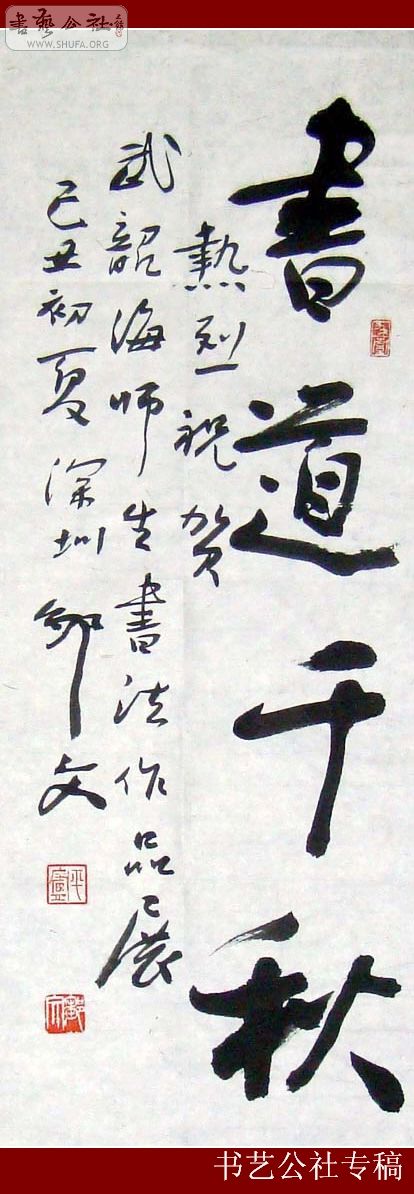 書藝公社
WWW.SHUFA.ORG
書道千秋
熱烈祝贺
武韶海师生書法作品展
己丑初夏深圳邹文
书艺公社专稿